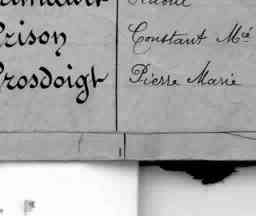 Raoul
Prison Constant Mie
Prosdoigt Pierre Marie